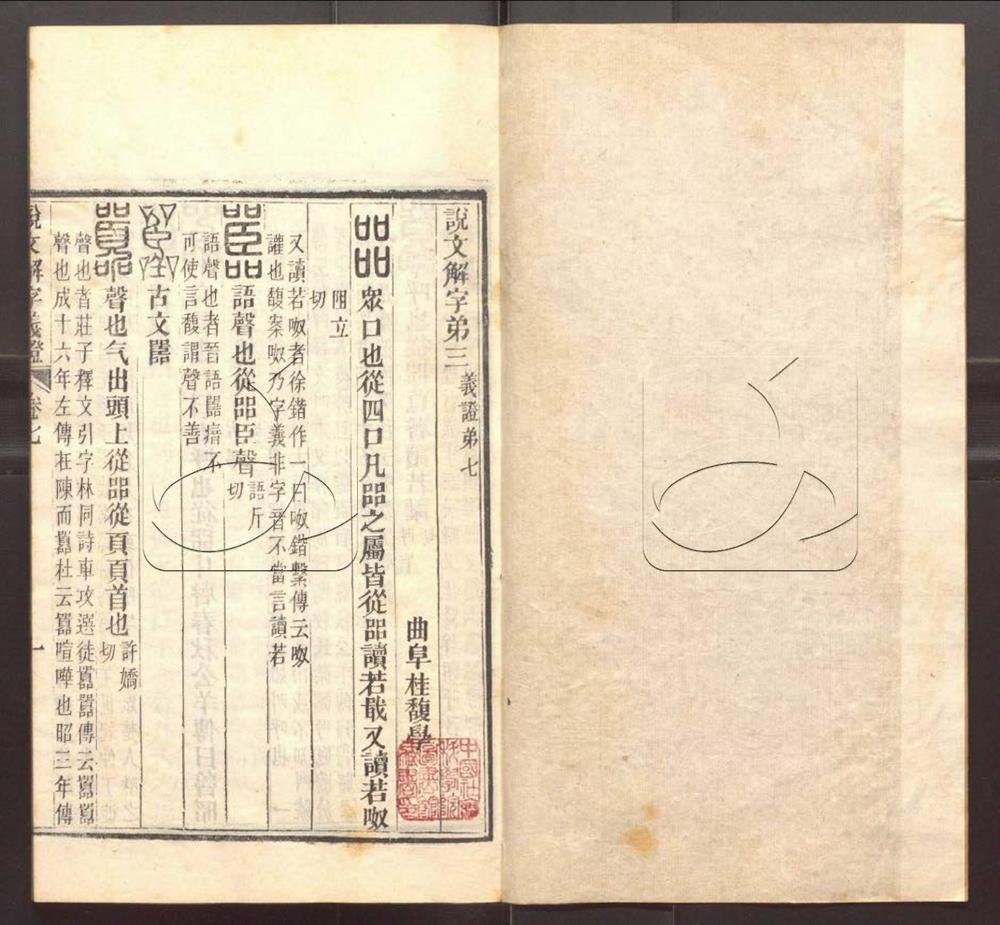 說文解字弟三 義證弟七
曲阜桂馥學
㗊 眾口也從四口凡㗊之屬皆從㗊讀若戢又讀若呶
阻立
切
又讀若呶者徐鍇作一曰呶鍇繫傳云呶
讙也馥案呶乃字義非字音不當言讀若
嚚 語聲也從㗊臣聲 語斤
切
語聲也者晉語嚚瘖不
可使言馥謂聲不善
古文嚚
囂 聲也气出頭上從㗊從頁頁首也 許嬌
切
聲也者莊子釋文引字林同詩車攻選徒囂囂傳云囂囂
聲也成十六年左傳在陳而囂杜云囂喧嘩也昭三年傳
說文解字義證 卷七 一